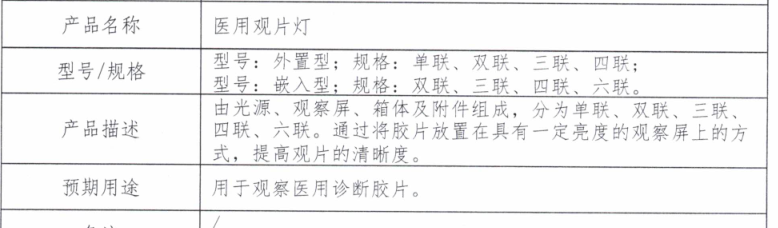 产品名称 医用观片灯
型号/规格 型号：外置型；规格：单联、双联、三联、四联；
型号：嵌入型；规格：双联、三联、四联、六联。
产品描述 由光源、观察屏、箱体及附件组成，分为单联、双联、三联、
四联、六联。通过将胶片放置在具有一定亮度的观察屏上的方
式，提高观片的清晰度。
预期用途 用于观察医用诊断胶片。
/